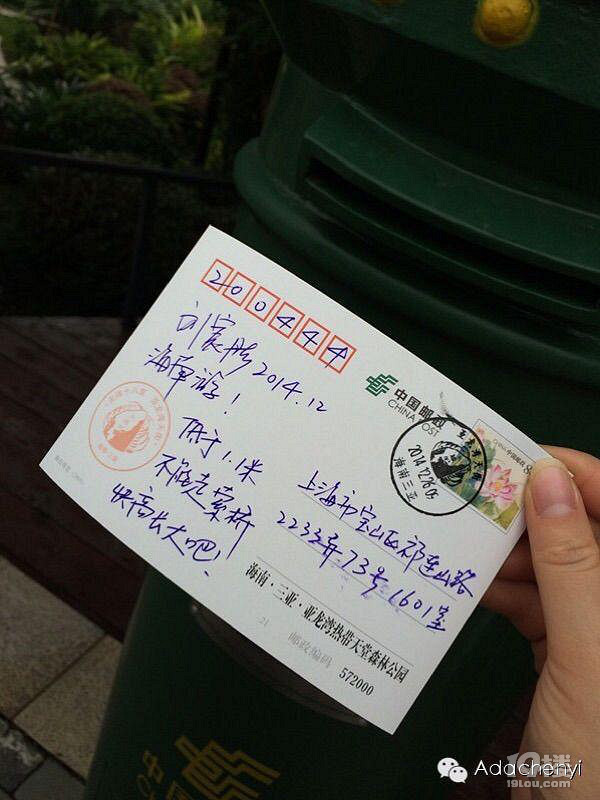 200444
刘宸彤 2014.12
海南游！
低于1.1米
不能走索桥
快高长大吧！
中国邮政
CHINA POST
2014.12.26
海南三亚
上海市宝山区祁连山路
2232弄73号1601室
海南·三亚·亚龙湾热带天堂森林公园
邮政编码 572000
中国
CHINA
Adachenyi
19楼
19lou.com